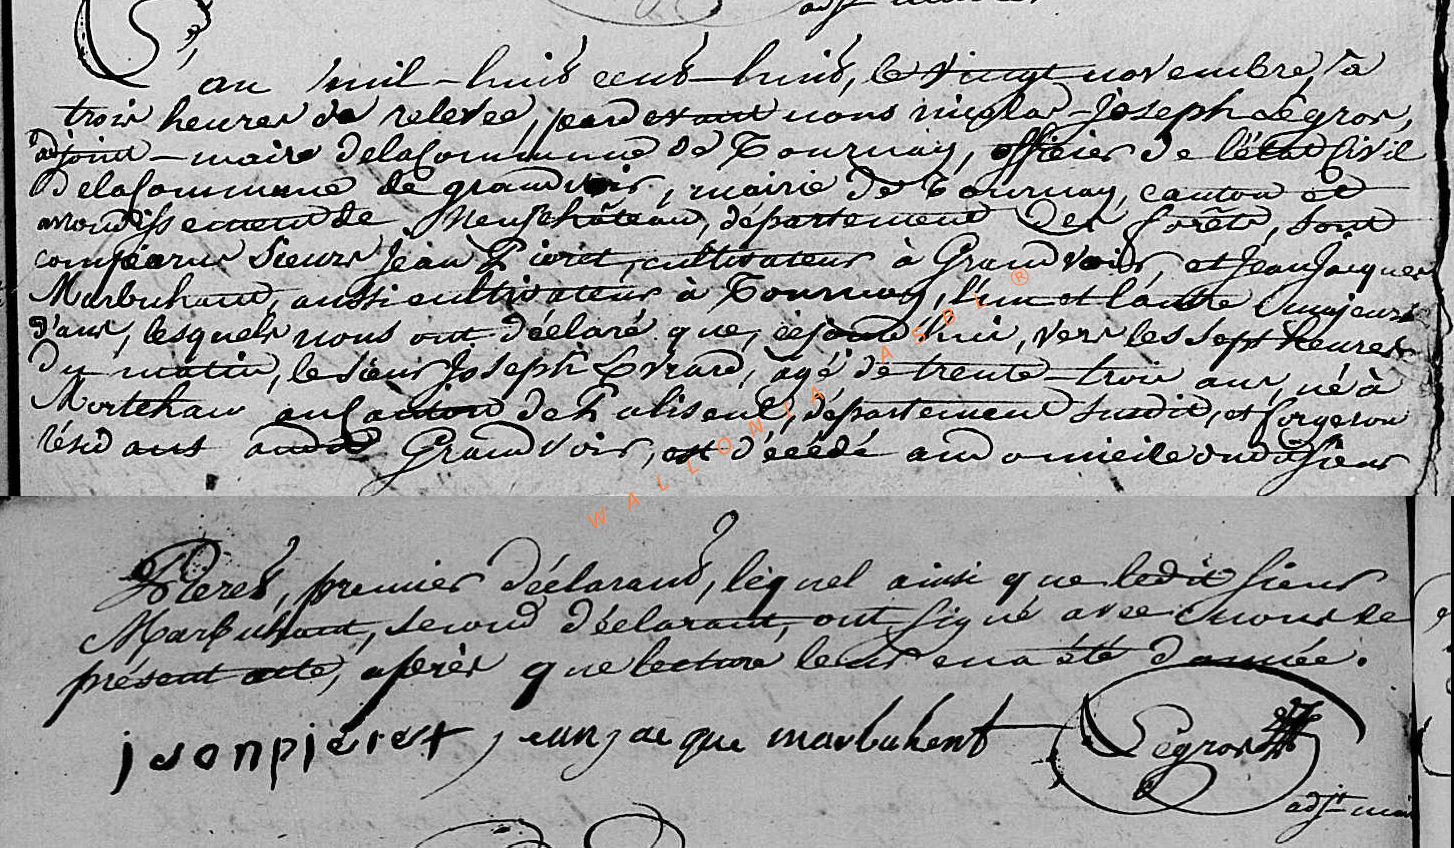 adjt maire
L'an mil-huit cent-huit, le vingt novembre, à
trois heures de relevée, pardevant nous nicolas-Joseph Legros,
adjoint-maire de la Commune de Tournay, officier de l'état Civil
de la Commune de grandvoir, mairie de Tournay, canton et
arrondissement de Neufchâteau, département Des forêts, sont
comparus Sieurs Jean Pieret, cultivateur à Grandvoir, et Jean Jacques
Marbuhant, aussi cultivateur à Tournay, l'un et l'autre majeurs
d'ans, lesquels nous ont déclaré que, cejourd'hui, vers les sept heures
du matin, le sieur Joseph Evrard, âgé de trente-trois ans, né à
Mortehan au Canton de Paliseul, département susdit, et forgeron
résidant audit Grandvoir, est décédé au domicile dudit Sieur
Pieret, premier déclarant, lequel ainsi que ledit sieur
Marbuhant, second déclarant, ont signé avec nous le
présent acte, après que lecture leur en a été donnée.
jeanpieret jeanjacque marbuhent Legros
adjt mai
WALLONIA ASBL ®